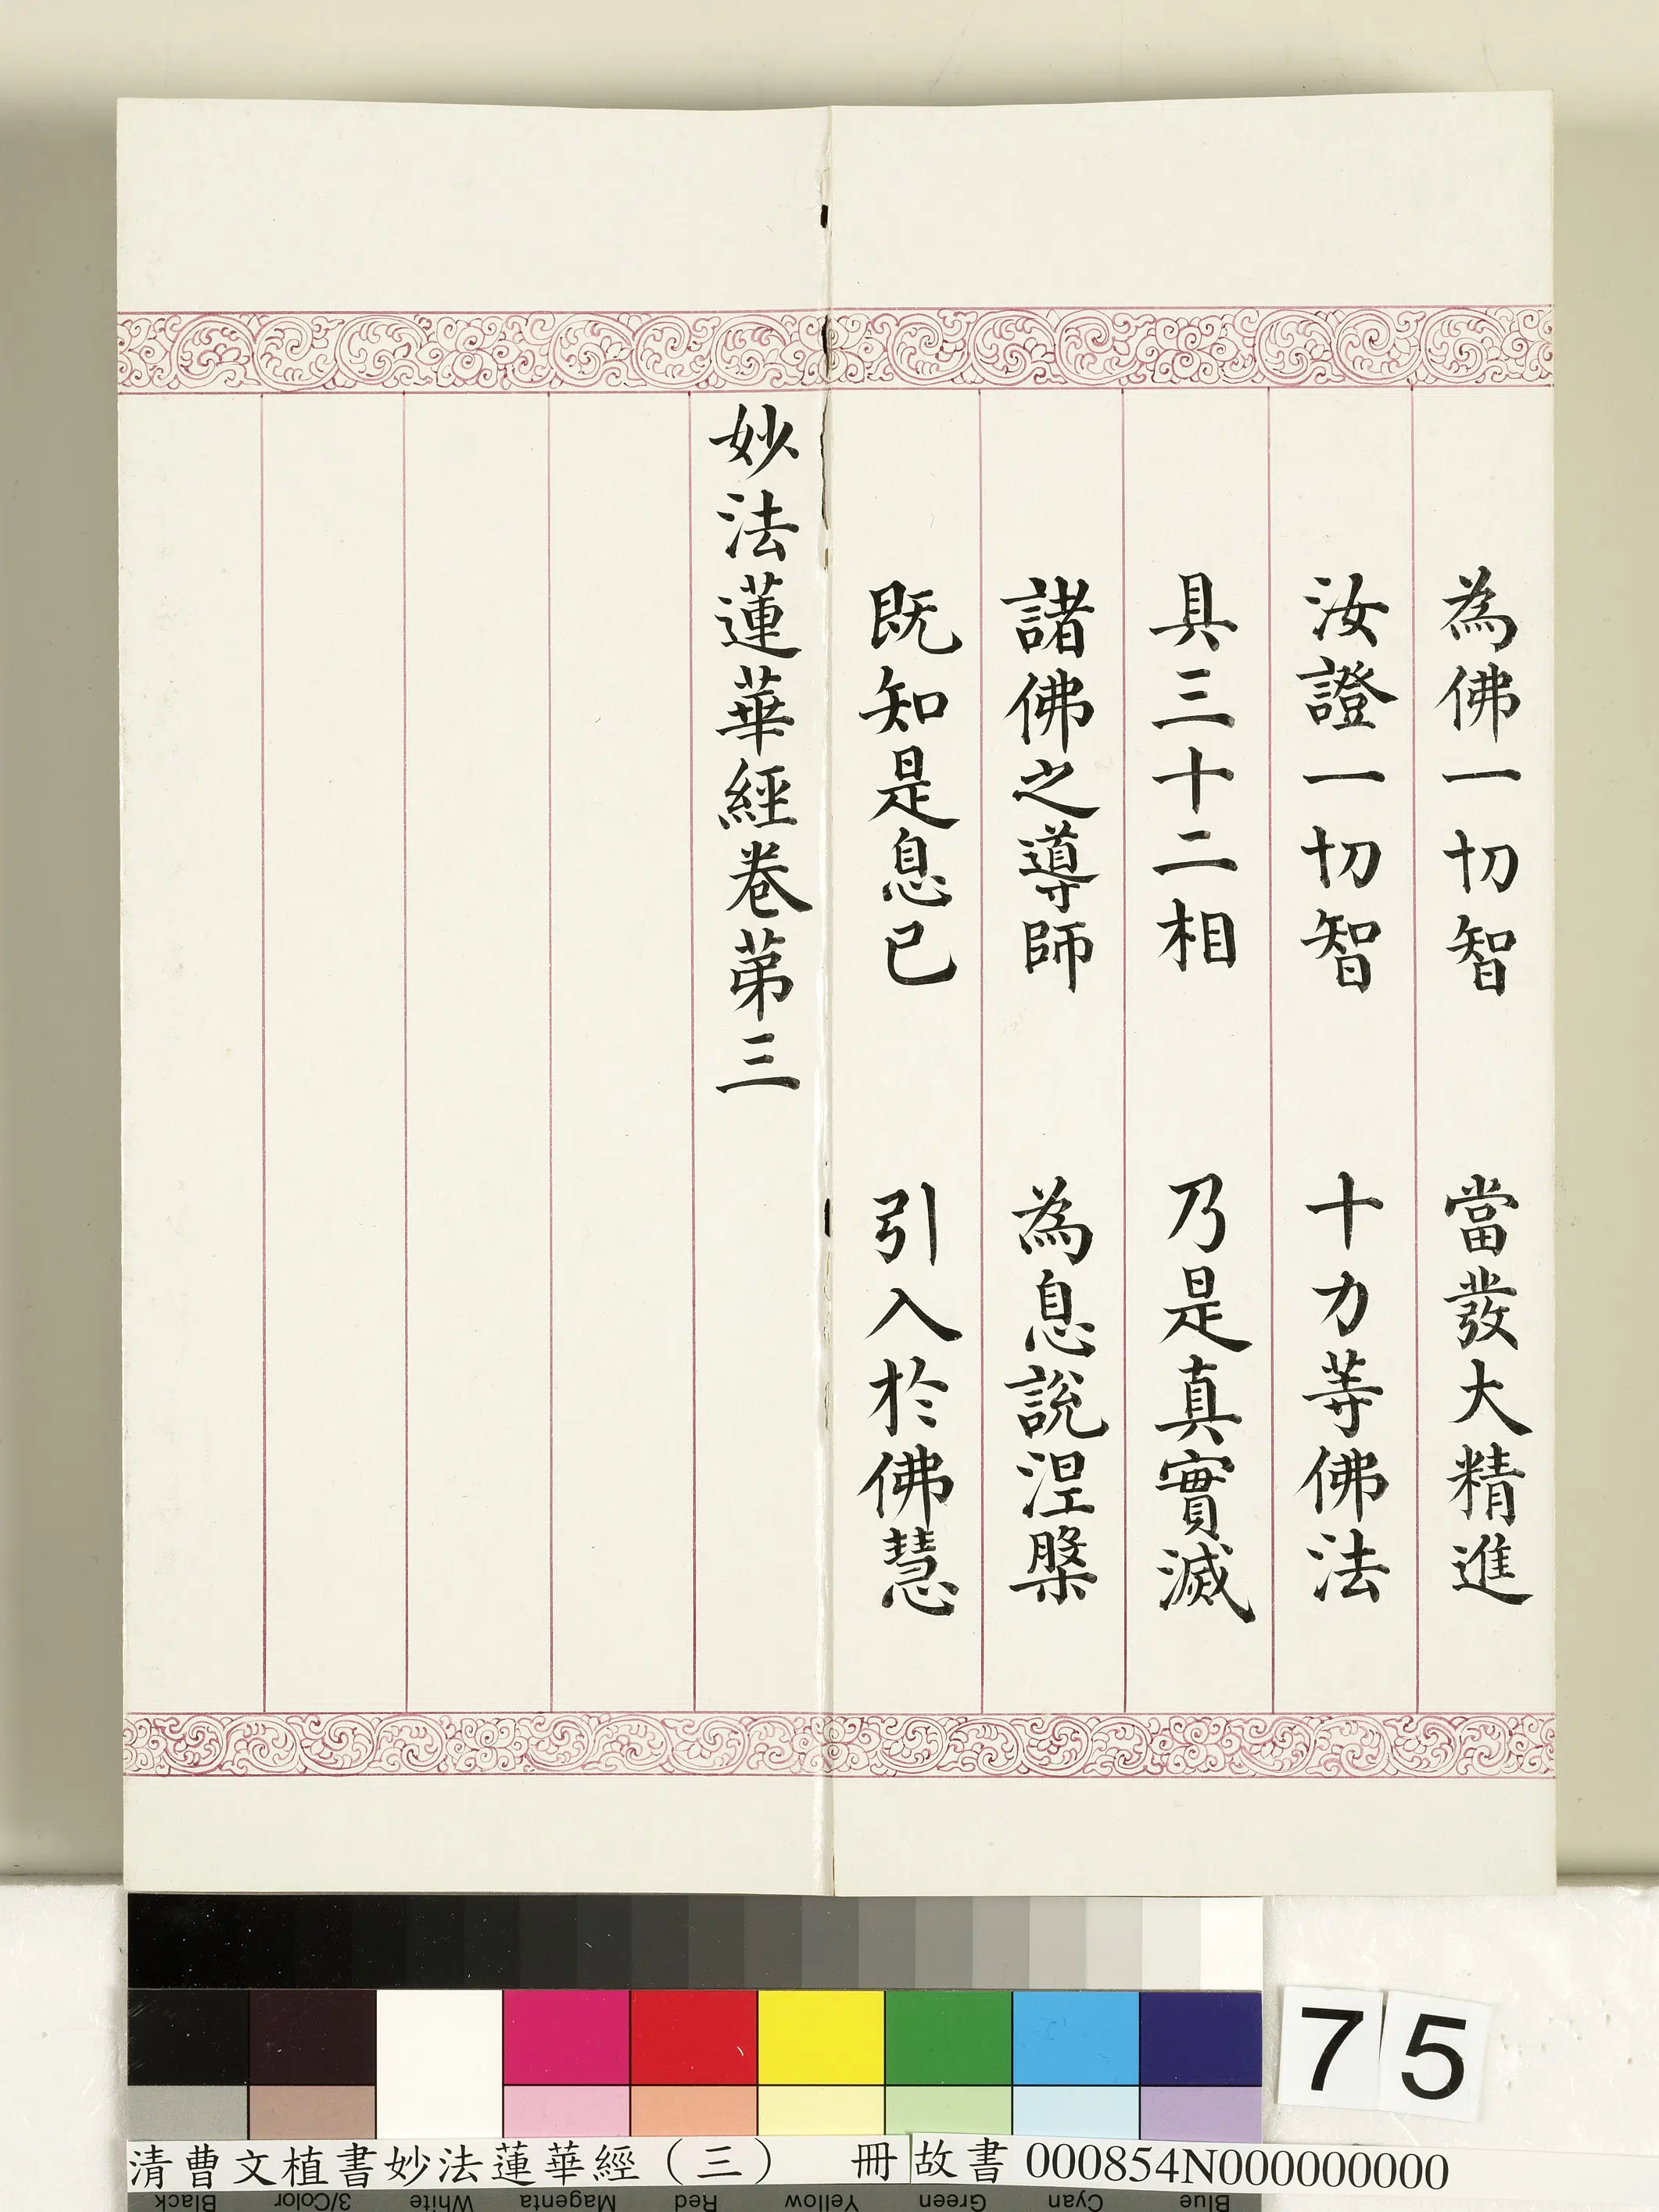 為佛一切智　當發大精進
汝證一切智　十力等佛法
具三十二相　乃是真實滅
諸佛之導師　為息說涅槃
既知是息已　引入於佛慧
妙法蓮華經卷苐三
75
清曹文植書妙法蓮華經（三）　冊 故書 000854N000000000
Black 3/Color White Magenta Red Yellow Green Cyan Blue